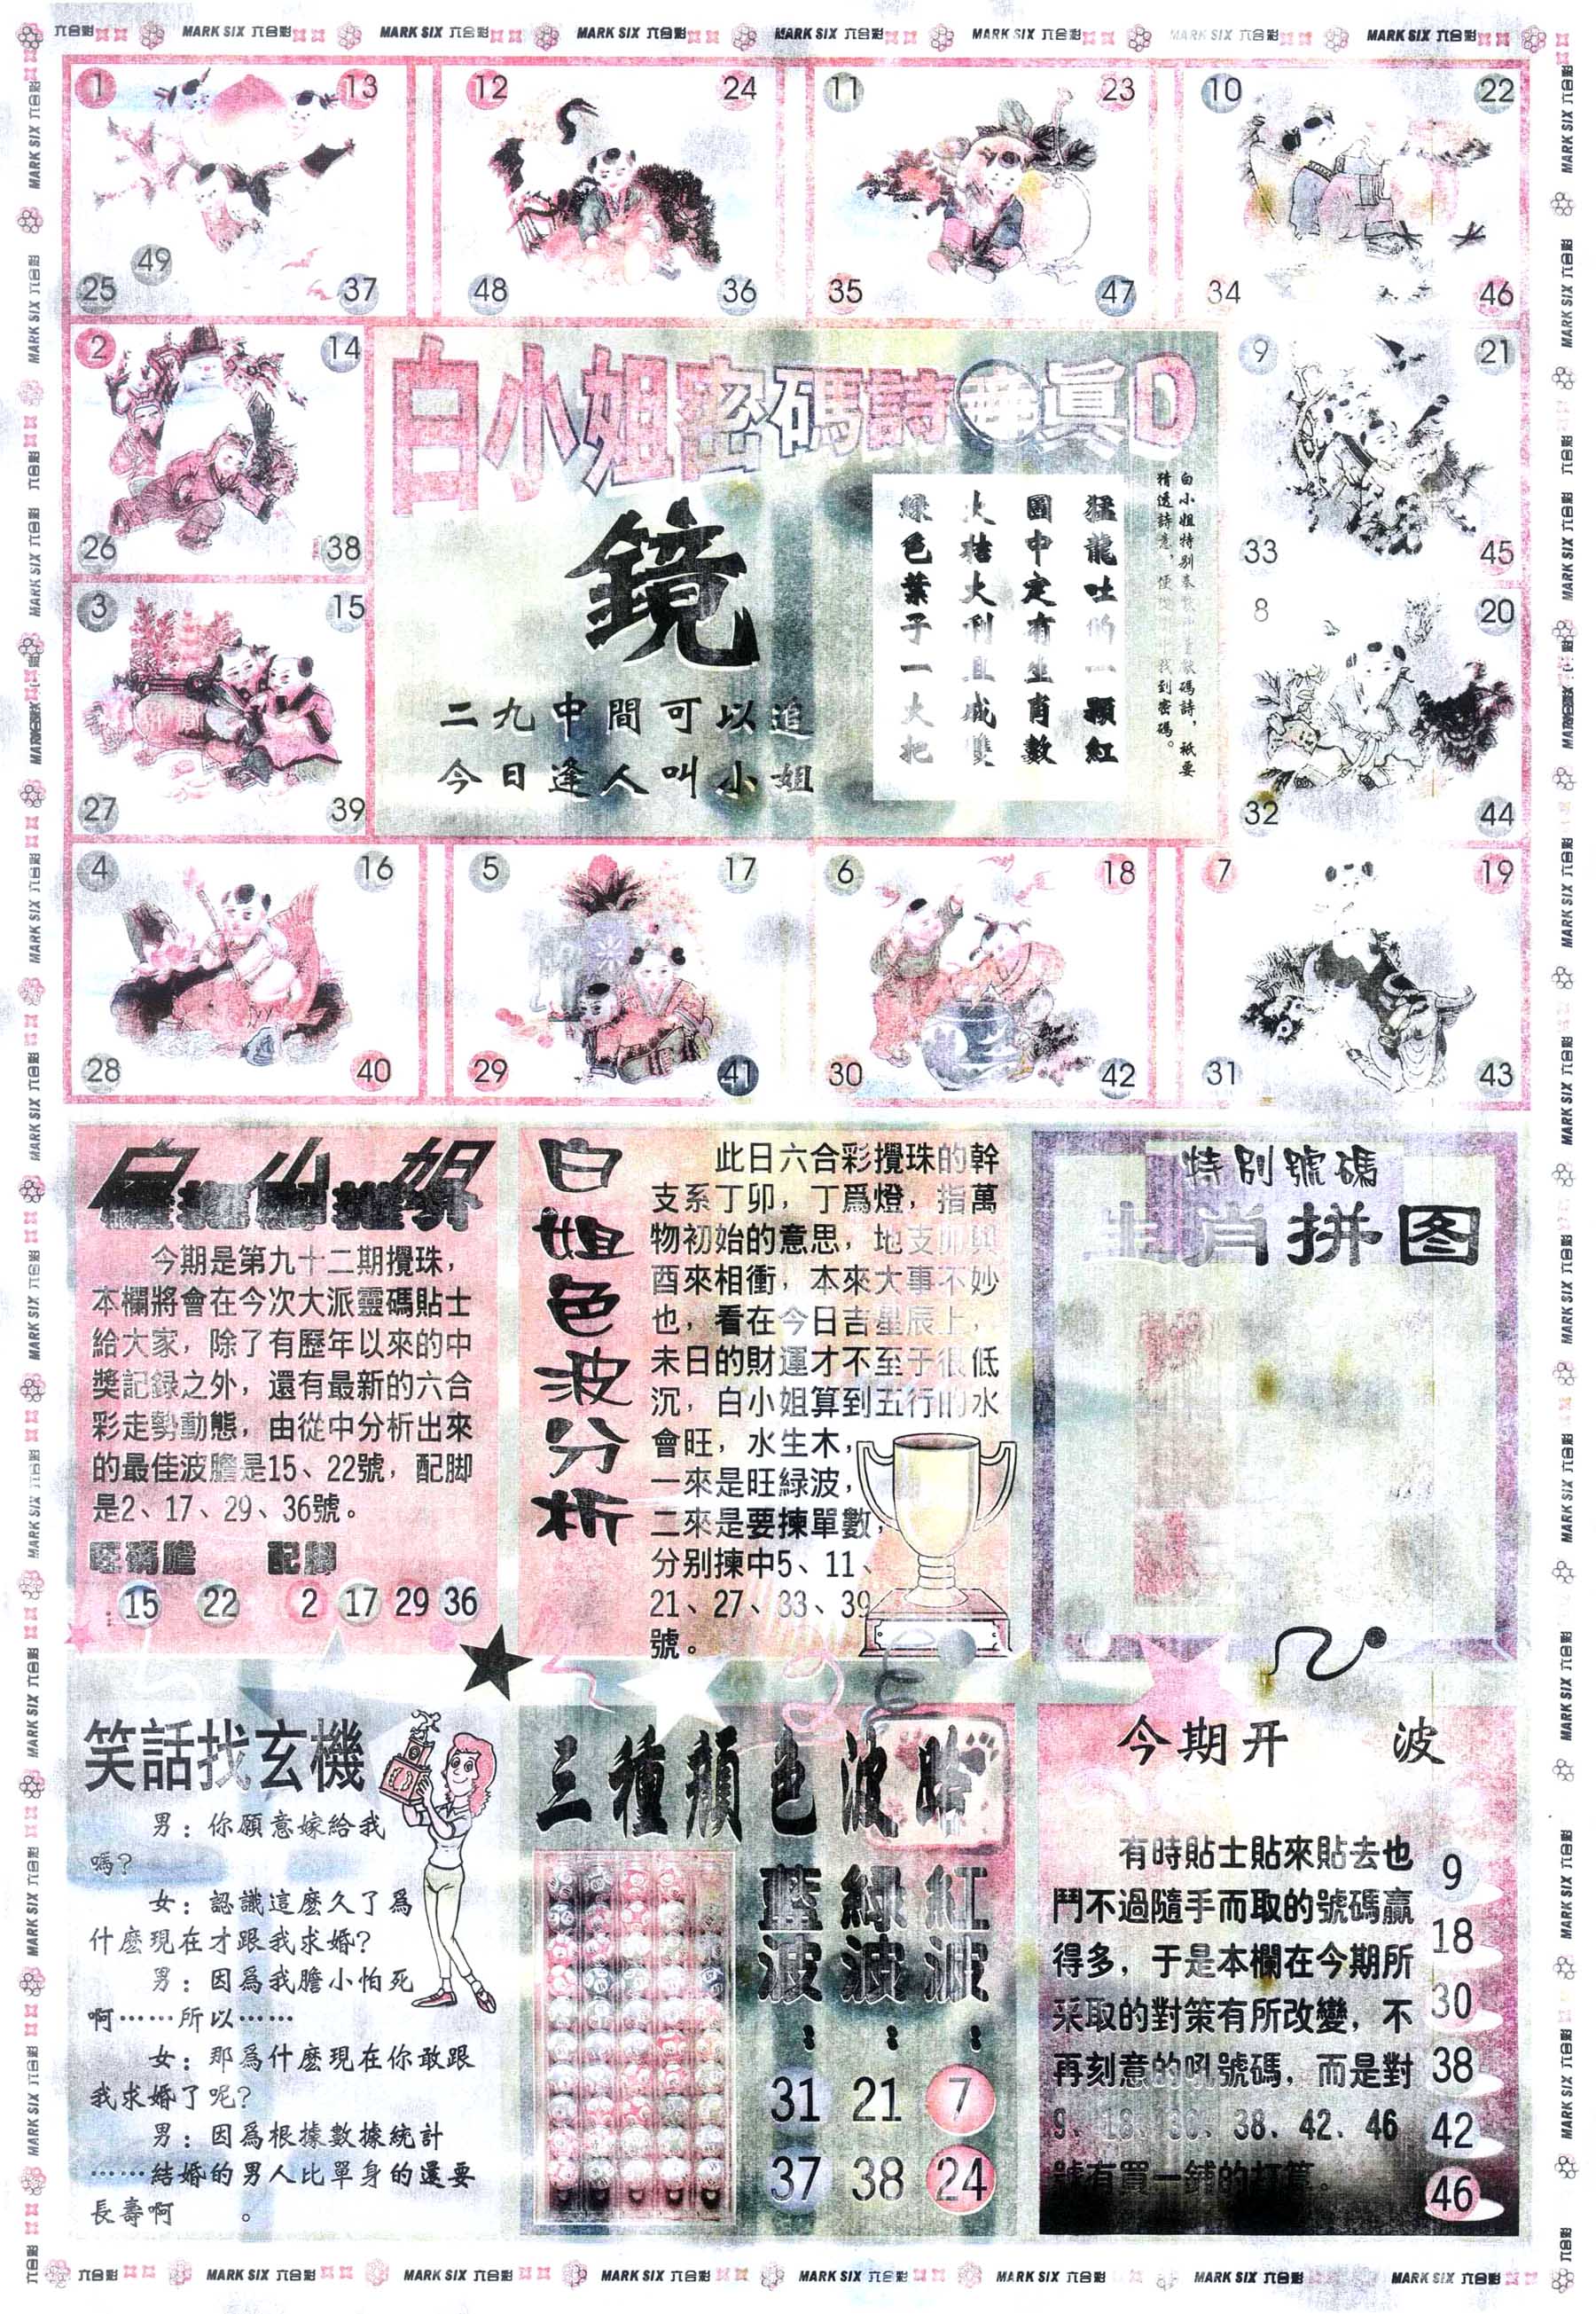 MARK SIX 六合彩
1 13
25 49 37
12 24
48 36
11 23
35 47
10 22
34 46
2 14
26 38
3 15
27 39
9 21
33 45
8 20
32 44
4 16
28 40
5 17
29 41
6 18
30 42
7 19
31 43
白小姐密碼詩 真D
鏡
二九中間可以追
今日逢人叫小姐
白小姐特別奉 密碼詩，祇要
精透詩意，便 找到密碼。
猛龍吐的一顆紅
圖中定有生肖數
大桔大利且成雙
綠色葉子一大把
白小姐
今期是第九十二期攪珠，
本欄將會在今次大派靈碼貼士
給大家，除了有歷年以來的中
獎記錄之外，還有最新的六合
彩走勢動態，由從中分析出來
的最佳波膽是15、22號，配脚
是2、17、29、36號。
旺碼膽 配脚
15 22 2 17 29 36
白姐色波分析
此日六合彩攪珠的幹
支系丁卯，丁爲燈，指萬
物初始的意思，地支卯與
酉來相衝，本來大事不妙
也，看在今日吉星辰上，
未日的財運才不至于很低
沉，白小姐算到五行的水
會旺，水生木，
一來是旺緑波，
二來是要揀單數，
分别揀中5、11、
21、27、33、39
號。
特别號碼
生肖拼图
笑話找玄機
男：你願意嫁給我
嗎？
女：認識這麽久了爲
什麽現在才跟我求婚？
男：因爲我膽小怕死
啊……所以……
女：那爲什麽現在你敢跟
我求婚了呢？
男：因爲根據數據統計
……結婚的男人比單身的還要
長壽啊 。
三種顔色波膽
紅波：
7
24
綠波：
21
38
藍波：
31
37
今期开 波
有時貼士貼來貼去也
鬥不過隨手而取的號碼贏
得多，于是本欄在今期所
采取的對策有所改變，不
再刻意的吼號碼，而是對
9、18、30、38、42、46
號有買一鋪的打算。
9
18
30
38
42
46
MARK SIX 六合彩